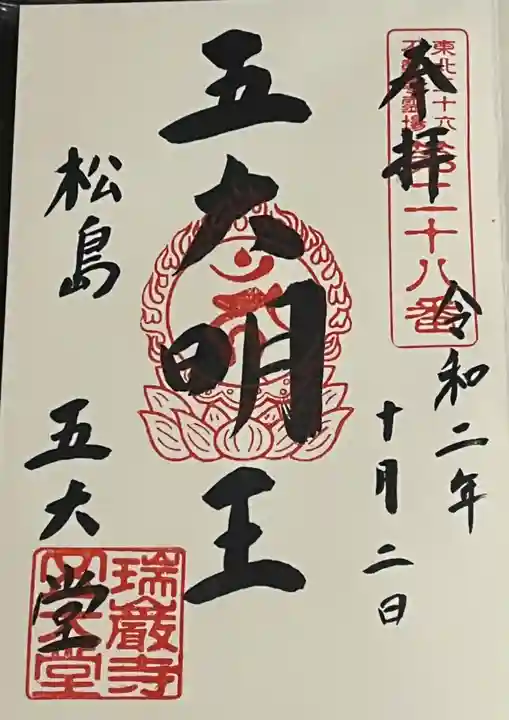 奉拝
東北三十六
不動尊霊場
第二十八番
令和二年
十月二日
五大明王
松島
五大堂
瑞巌寺
五大堂